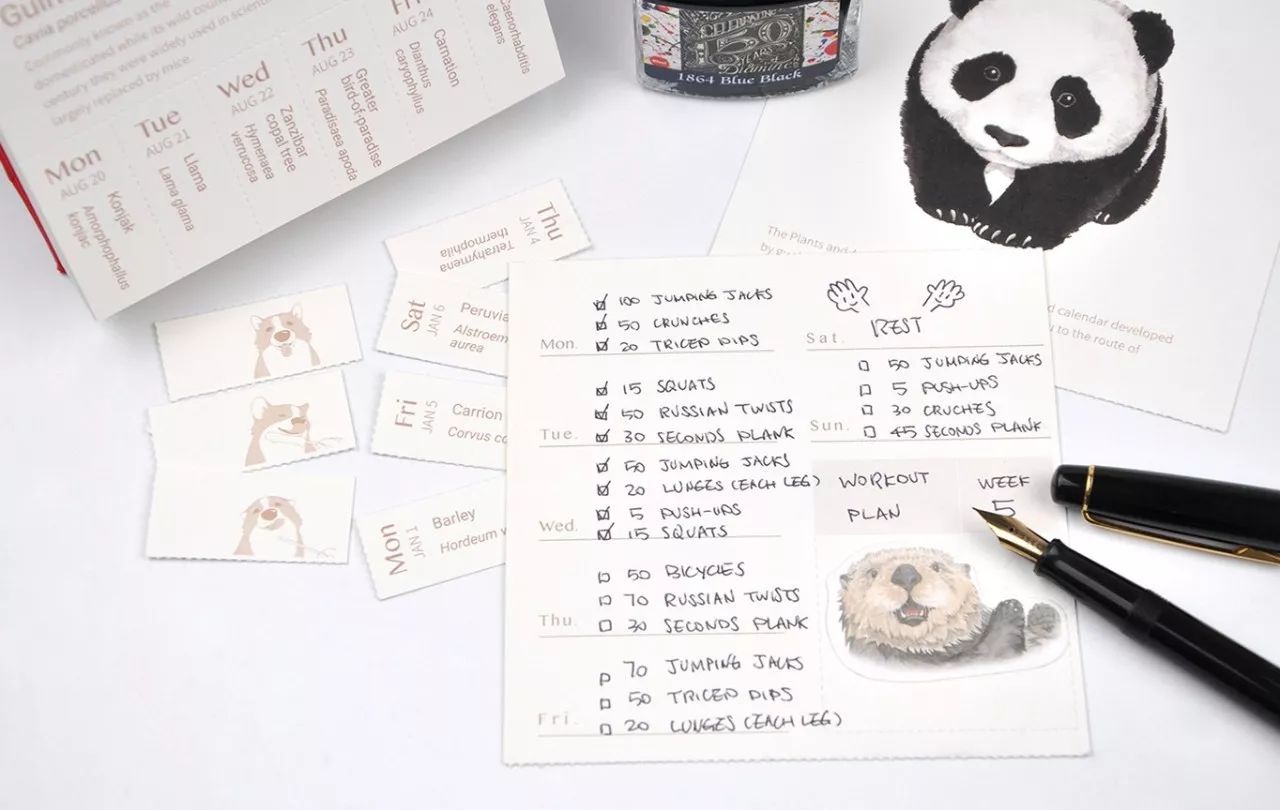 Cavia porcellus
Commonly known as the
domesticated while its wild
century they were widely used in
largely replaced by mice.
Mon
AUG 20
Konjak
Amorphophallus
konjac
Tue
AUG 21
Llama
Lama glama
Wed
AUG 22
Zanzibar
copal tree
Hymenaea
verrucosa
Thu
AUG 23
Greater
bird-of-paradise
Paradisaea apoda
AUG 24
Carnation
Dianthus
caryophyllus
Caenorhabditis
elegans
CELEBRATING
150
YEARS
Diamine
1864 Blue Black
The Plants and
calendar developed
to the route of
Thu
JAN 4
Tetrahymena
thermophila
Sat
JAN 6
Alstroem
aurea
Fri
JAN 5
Carrion
Corvus
Mon
JAN 1
Barley
Hordeum
100 JUMPING JACKS
50 CRUNCHES
Mon. 20 TRICEP DIPS
15 SQUATS
50 RUSSIAN TWISTS
Tue. 30 SECONDS PLANK
50 JUMPING JACKS
20 LUNGES (EACH LEG)
5 PUSH-UPS
Wed. 15 SQUATS
50 BICYCLES
70 RUSSIAN TWISTS
Thu. 30 SECONDS PLANK
70 JUMPING JACKS
50 TRICEP DIPS
Fri. 20 LUNGES (EACH LEG)
REST
Sat.
50 JUMPING JACKS
5 PUSH-UPS
30 CRUCHES
Sun. 45 SECONDS PLANK
WORKOUT
PLAN
WEEK
5